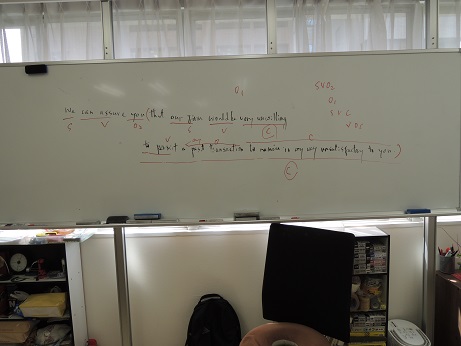 O₁
SVO₂
O₁
SVC
VOC
we can assure you (that our firm would be very unwilling
S V O₂ S V C
V O C
to permit a past transaction to remain in any way unsatisfactory to you)
C